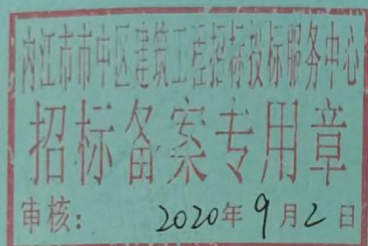 内江市市中区建筑工程招标投标服务中心
招标备案专用章
审核： 2020年9月2日